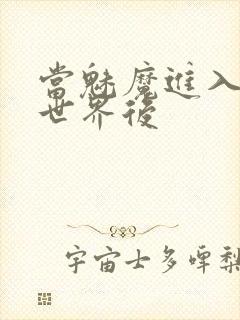 當魅魔進入
世界後
宇宙士多啤梨